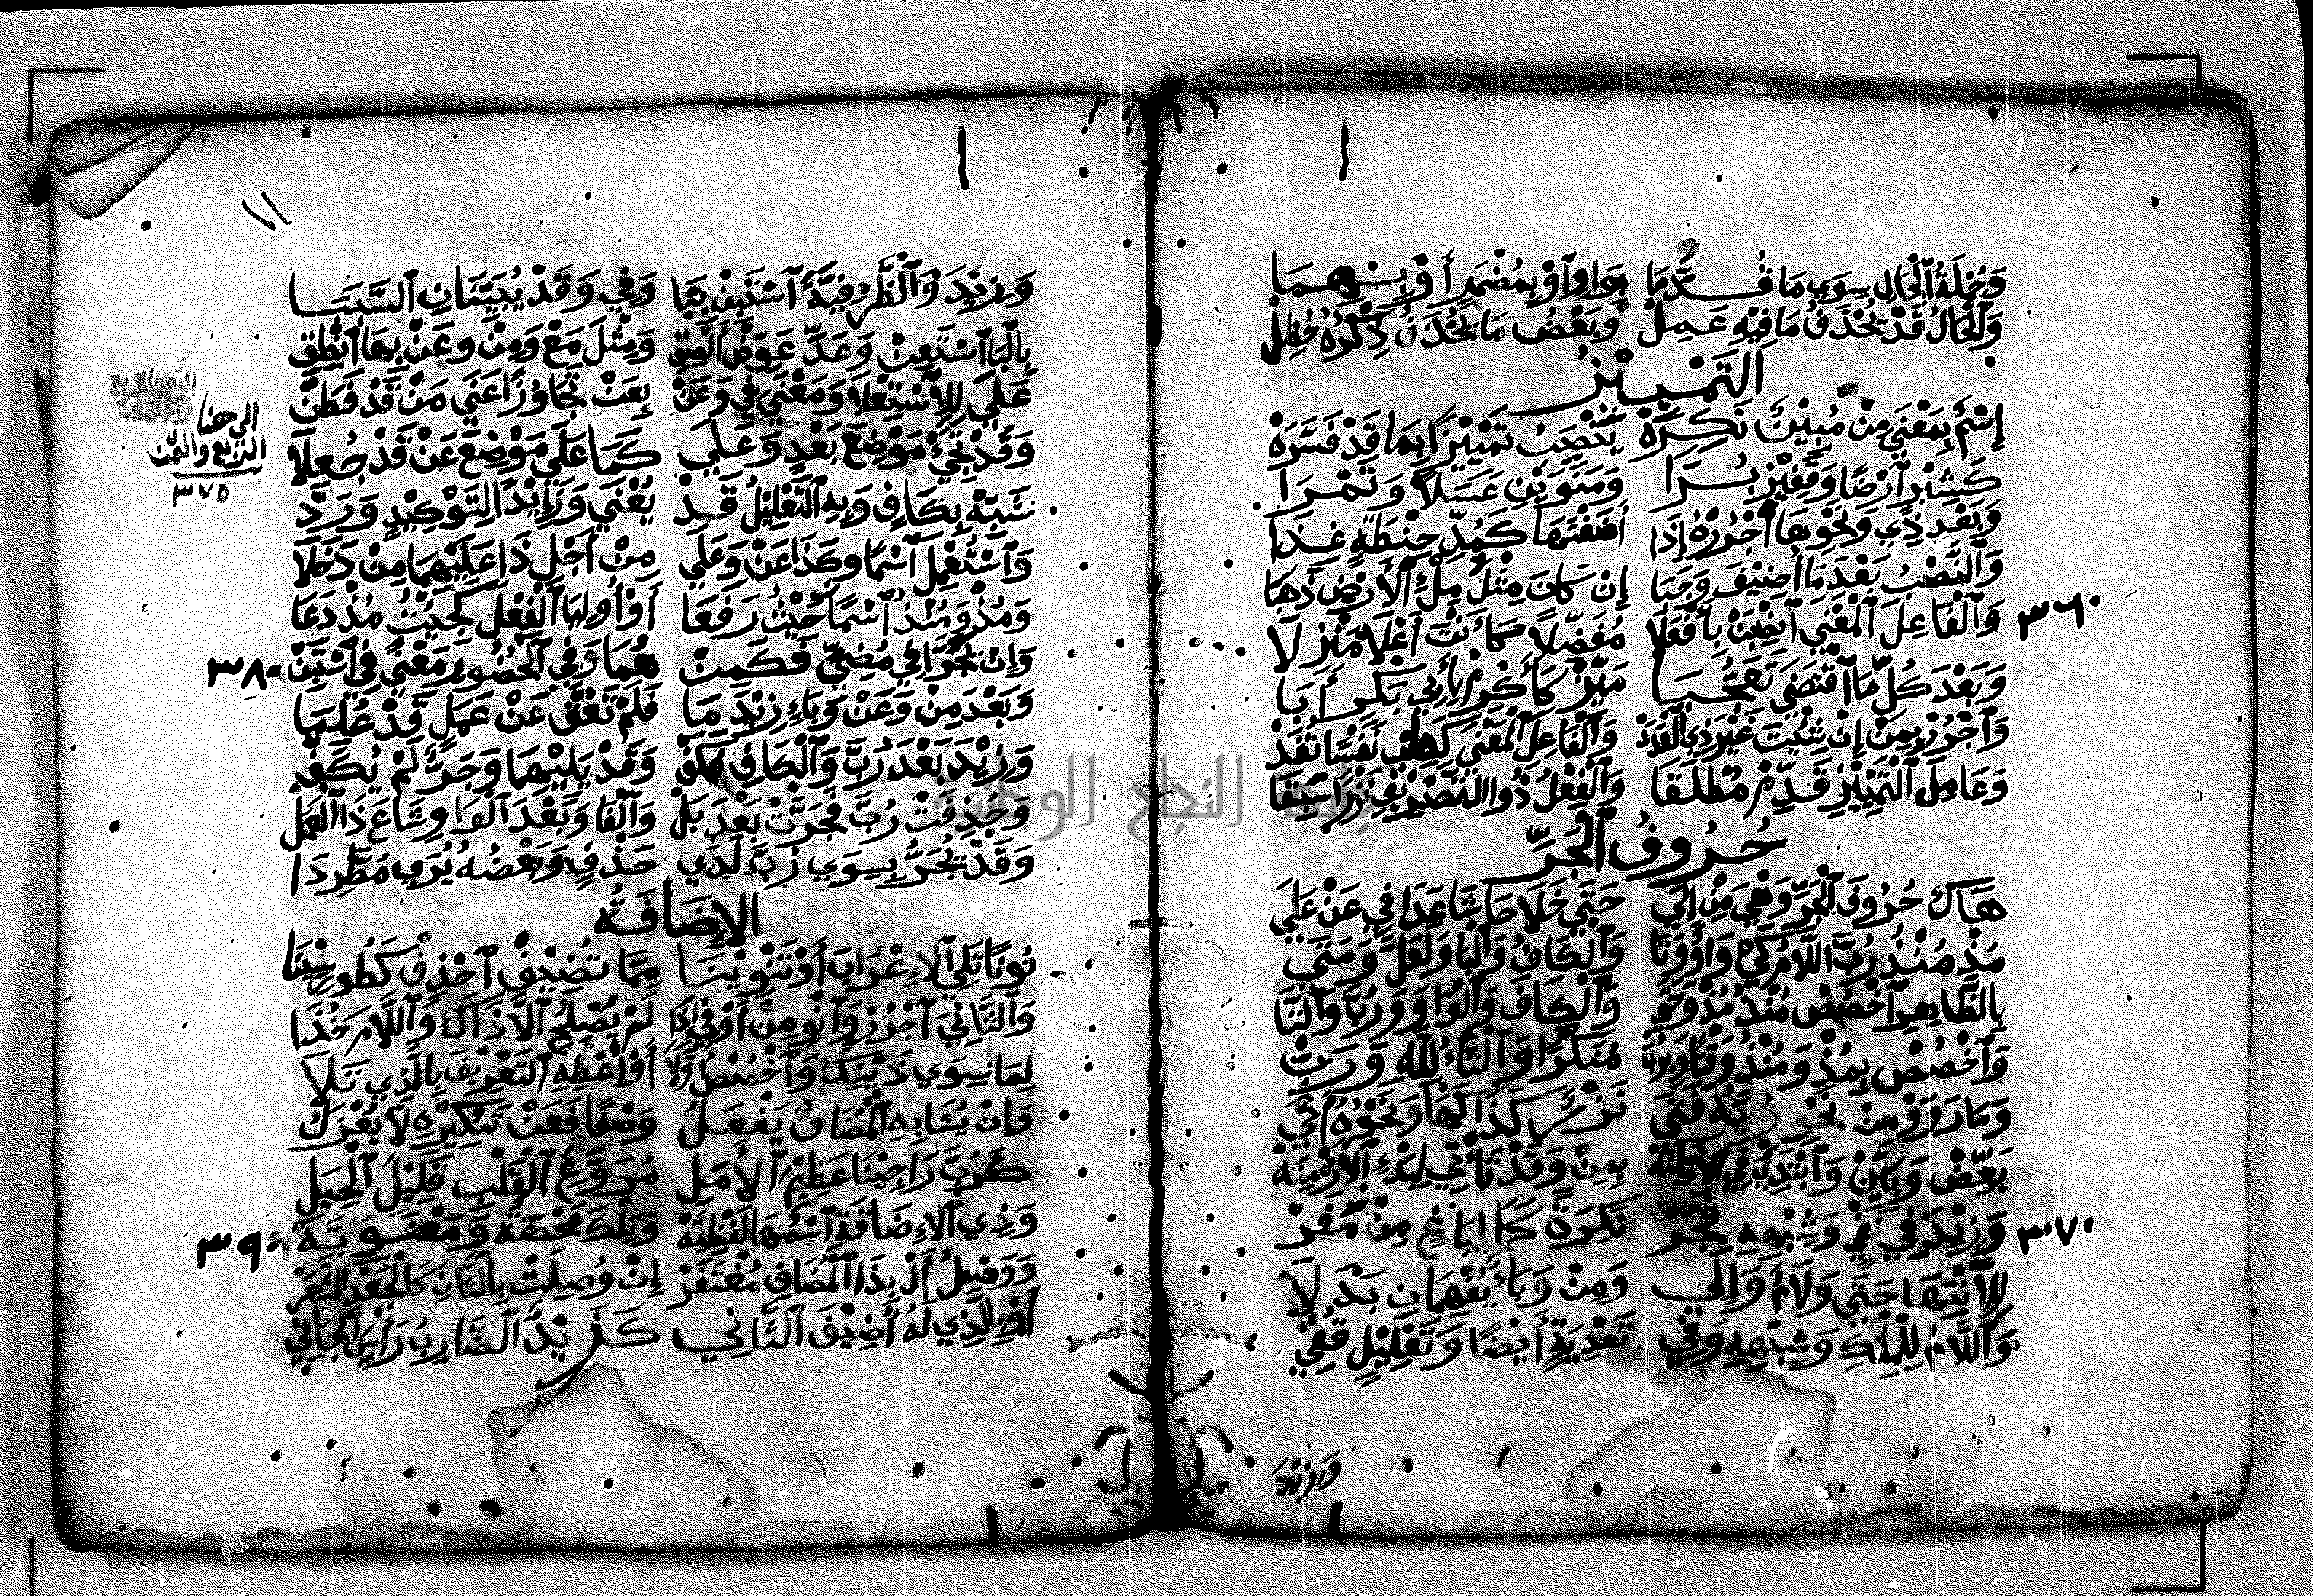 وَجُمْلَةُ ٱلْحَالِ سِوَى مَا قُدِّمَا بِوَاوٍ ٱوْ بِمُضْمَرٍ أَوْ بِهِمَا
وَٱلْحَالُ قَدْ يُحْذَفُ مَا فِيهِ عَمِلْ وَبَعْضُ مَا يُحْذَفُ ذِكْرُهُ حُظِلْ
التَّمْيِيْزُ
إِسْمٌ بِمَعْنَى مِنْ مُبِيْنٌ نَكِرَهْ يُنْصَبُ تَمْيِيْزًا بِمَا قَدْ فَسَّرَهْ
كَشِبْرٍ ٱرْضًا وَقَفِيْزٍ بُرَّا وَمَنَوَيْنِ عَسَلًا وَتَمْرَا
وَبَعْدَ ذِي وَنَحْوِهَا ٱجْرُرْهُ إِذَا أَضَفْتَهَا كَمُدِّ حِنْطَةٍ غِذَا
وَٱلنَّصْبُ بَعْدَ مَا أُضِيْفَ وَجَبَا إِنْ كَانَ مِثْلَ مِلْءُ ٱلْأَرْضِ ذَهَبَا
وَٱلْفَاعِلَ ٱلْمَعْنَى ٱنْصِبَنْ بِأَفْعَلَا مُفَضِّلًا كَأَنْتَ أَعْلَا مَنْزِلَا
٣٦٠
وَبَعْدَ كُلِّ مَا ٱقْتَضَى تَعَجُّبَا مَيِّزْ كَأَكْرِمْ بِأَبِي بَكْرٍ أَبَا
وَٱجْرُرْ بِمِنْ إِنْ شِئْتَ غَيْرَ ذِي ٱلْعَدَدْ وَٱلْفَاعِلِ ٱلْمَعْنَى كَطِبْ نَفْسًا تُفَدْ
وَعَامِلَ ٱلتَّمْيِيْزِ قَدِّمْ مُطْلَقَا وَٱلْفِعْلُ ذُو التَّصْرِيْفِ نَزْرًا سُبِقَا
حُرُوفُ ٱلْجَرِّ
هَاكَ حُرُوفَ ٱلْجَرِّ وَهْيَ مِنْ إِلَى حَتَّى خَلَا حَاشَا عَدَا فِي عَنْ عَلَى
مُذْ مُنْذُ رُبَّ اللَّامُ كَيْ وَاوٌ وَتَا وَٱلْكَافُ وَٱلْبَا وَلَعَلَّ وَمَتَى
بِالظَّاهِرِ ٱخْصُصْ مُنْذُ مُذْ وَحَتَّى وَٱلْكَافَ وَٱلْوَاوَ وَرُبَّ وَٱلتَّا
وَٱخْصُصْ بِمُذْ وَمُنْذُ وَقْتًا وَبِرُبْ مُنَكَّرًا وَٱلتَّاءُ لِلّٰهِ وَرَبْ
وَمَا رَوَوْا مِنْ نَحْوِ رُبَّهُ فَتَى نَزْرٌ كَذَا كَهَا وَنَحْوُهُ أَتَى
بَعِّضْ وَبَيِّنْ وَٱبْتَدِئْ فِي ٱلْأَمْكِنَهْ بِمِنْ وَقَدْ تَأْتِي لِبَدْءِ ٱلْأَزْمِنَهْ
وَزِيْدَ فِي نَفْيٍ وَشِبْهِهِ فَجَرْ نَكِرَةً كَمَا لِبَاغٍ مِنْ مَفَرْ
٣٧٠
لِلِٱنْتِهَا حَتَّى وَلَامٌ وَإِلَى وَمِنْ وَبَاءٌ يُفْهِمَانِ بَدَلَا
وَٱللَّامُ لِلْمِلْكِ وَشِبْهِهِ وَفِي تَعْدِيَةٍ أَيْضًا وَتَعْلِيْلٍ قُفِي
وَزِيْدَ
١١
وَزِيْدَ وَٱلظَّرْفِيَّةَ ٱسْتَبِنْ بِبَا وَفِي وَقَدْ يُبَيِّنَانِ ٱلسَّبَبَا
بِالْبَا ٱسْتَعِنْ وَعَدِّ عَوِّضْ أَلْصِقِ وَمِثْلَ مَعْ وَمِنْ وَعَنْ بِهَا ٱنْطِقِ
عَلَى لِلِٱسْتِعْلَا وَمَعْنَى فِي وَعَنْ بِعَنْ تَجَاوُزًا عَنَى مَنْ قَدْ فَطَنْ
وَقَدْ تَجِيْ مَوْضِعَ بَعْدٍ وَعَلَى كَمَا عَلَى مَوْضِعَ عَنْ قَدْ جُعِلَا
الى هنا
الربع والثمن
٣٧٥
شَبِّهْ بِكَافٍ وَبِهِ ٱلتَّعْلِيْلُ قَدْ يُعْنَى وَزَايِدًا لِتَوْكِيْدٍ وَرَدْ
وَٱسْتُعْمِلَ ٱسْمًا وَكَذَا عَنْ وَعَلَى مِنْ أَجْلِ ذَا عَلَيْهِمَا مِنْ دَخَلَا
وَمُذْ وَمُنْذُ ٱسْمَانِ حَيْثُ رَفَعَا أَوْ أُولِيَا ٱلْفِعْلَ كَجِئْتُ مُذْ دَعَا
وَإِنْ يَجُرَّا فِي مُضِيٍّ فَكَمِنْ هُمَا وَفِي ٱلْحُضُورِ مَعْنَى فِي ٱسْتَبِنْ
٣٨٠
وَبَعْدَ مِنْ وَعَنْ وَبَاءٍ زِيْدَ مَا فَلَمْ تَعُقْ عَنْ عَمَلٍ قَدْ عُلِمَا
وَزِيْدَ بَعْدَ رُبَّ وَٱلْكَافِ فَكَفْ وَقَدْ يَلِيْهِمَا وَجَرٌّ لَمْ يُكَفْ
وَحُذِفَتْ رُبَّ فَجَرَّتْ بَعْدَ بَلْ وَٱلْفَا وَبَعْدَ ٱلْوَاوِ شَاعَ ذَا ٱلْعَمَلْ
وَقَدْ يُجَرُّ بِسِوَى رُبَّ لَدَى حَذْفٍ وَبَعْضُهُ يُرَى مُطَّرِدَا
الإِضَافَةُ
نُونًا تَلِي ٱلْإِعْرَابَ أَوْ تَنْوِيْنَا مِمَّا تُضِيْفُ ٱحْذِفْ كَطُورِ سِيْنَا
وَٱلثَّانِيَ ٱجْرُرْ وَٱنْوِ مِنْ أَوْ فِي إِذَا لَمْ يَصْلُحِ ٱلَّا ذَاكَ وَٱللَّامَ خُذَا
لِمَا سِوَى ذَيْنِكَ وَٱخْصُصْ أَوَّلَا أَوْ أَعْطِهِ ٱلتَّعْرِيْفَ بِالَّذِي تَلَا
وَإِنْ يُشَابِهِ ٱلْمُضَافُ يَفْعَلُ وَصْفًا فَعَنْ تَنْكِيْرِهِ لَا يُعْزَلُ
كَرُبَّ رَاجِيْنَا عَظِيْمِ ٱلْأَمَلِ مُرَوَّعِ ٱلْقَلْبِ قَلِيْلِ ٱلْحِيَلِ
وَذِي ٱلْإِضَافَةُ ٱسْمُهَا لَفْظِيَّهْ وَتِلْكَ مَحْضَةٌ وَمَعْنَوِيَّهْ
٣٩٠
وَوَصْلُ أَلْ بِذَا ٱلْمُضَافِ مُغْتَفَرْ إِنْ وُصِلَتْ بِالثَّانِ كَالْجَعْدِ ٱلشَّعَرْ
أَوْ بِالَّذِي لَهُ أُضِيْفَ ٱلثَّانِي كَزَيْدٌ ٱلضَّارِبُ رَأْسِ ٱلْجَانِي